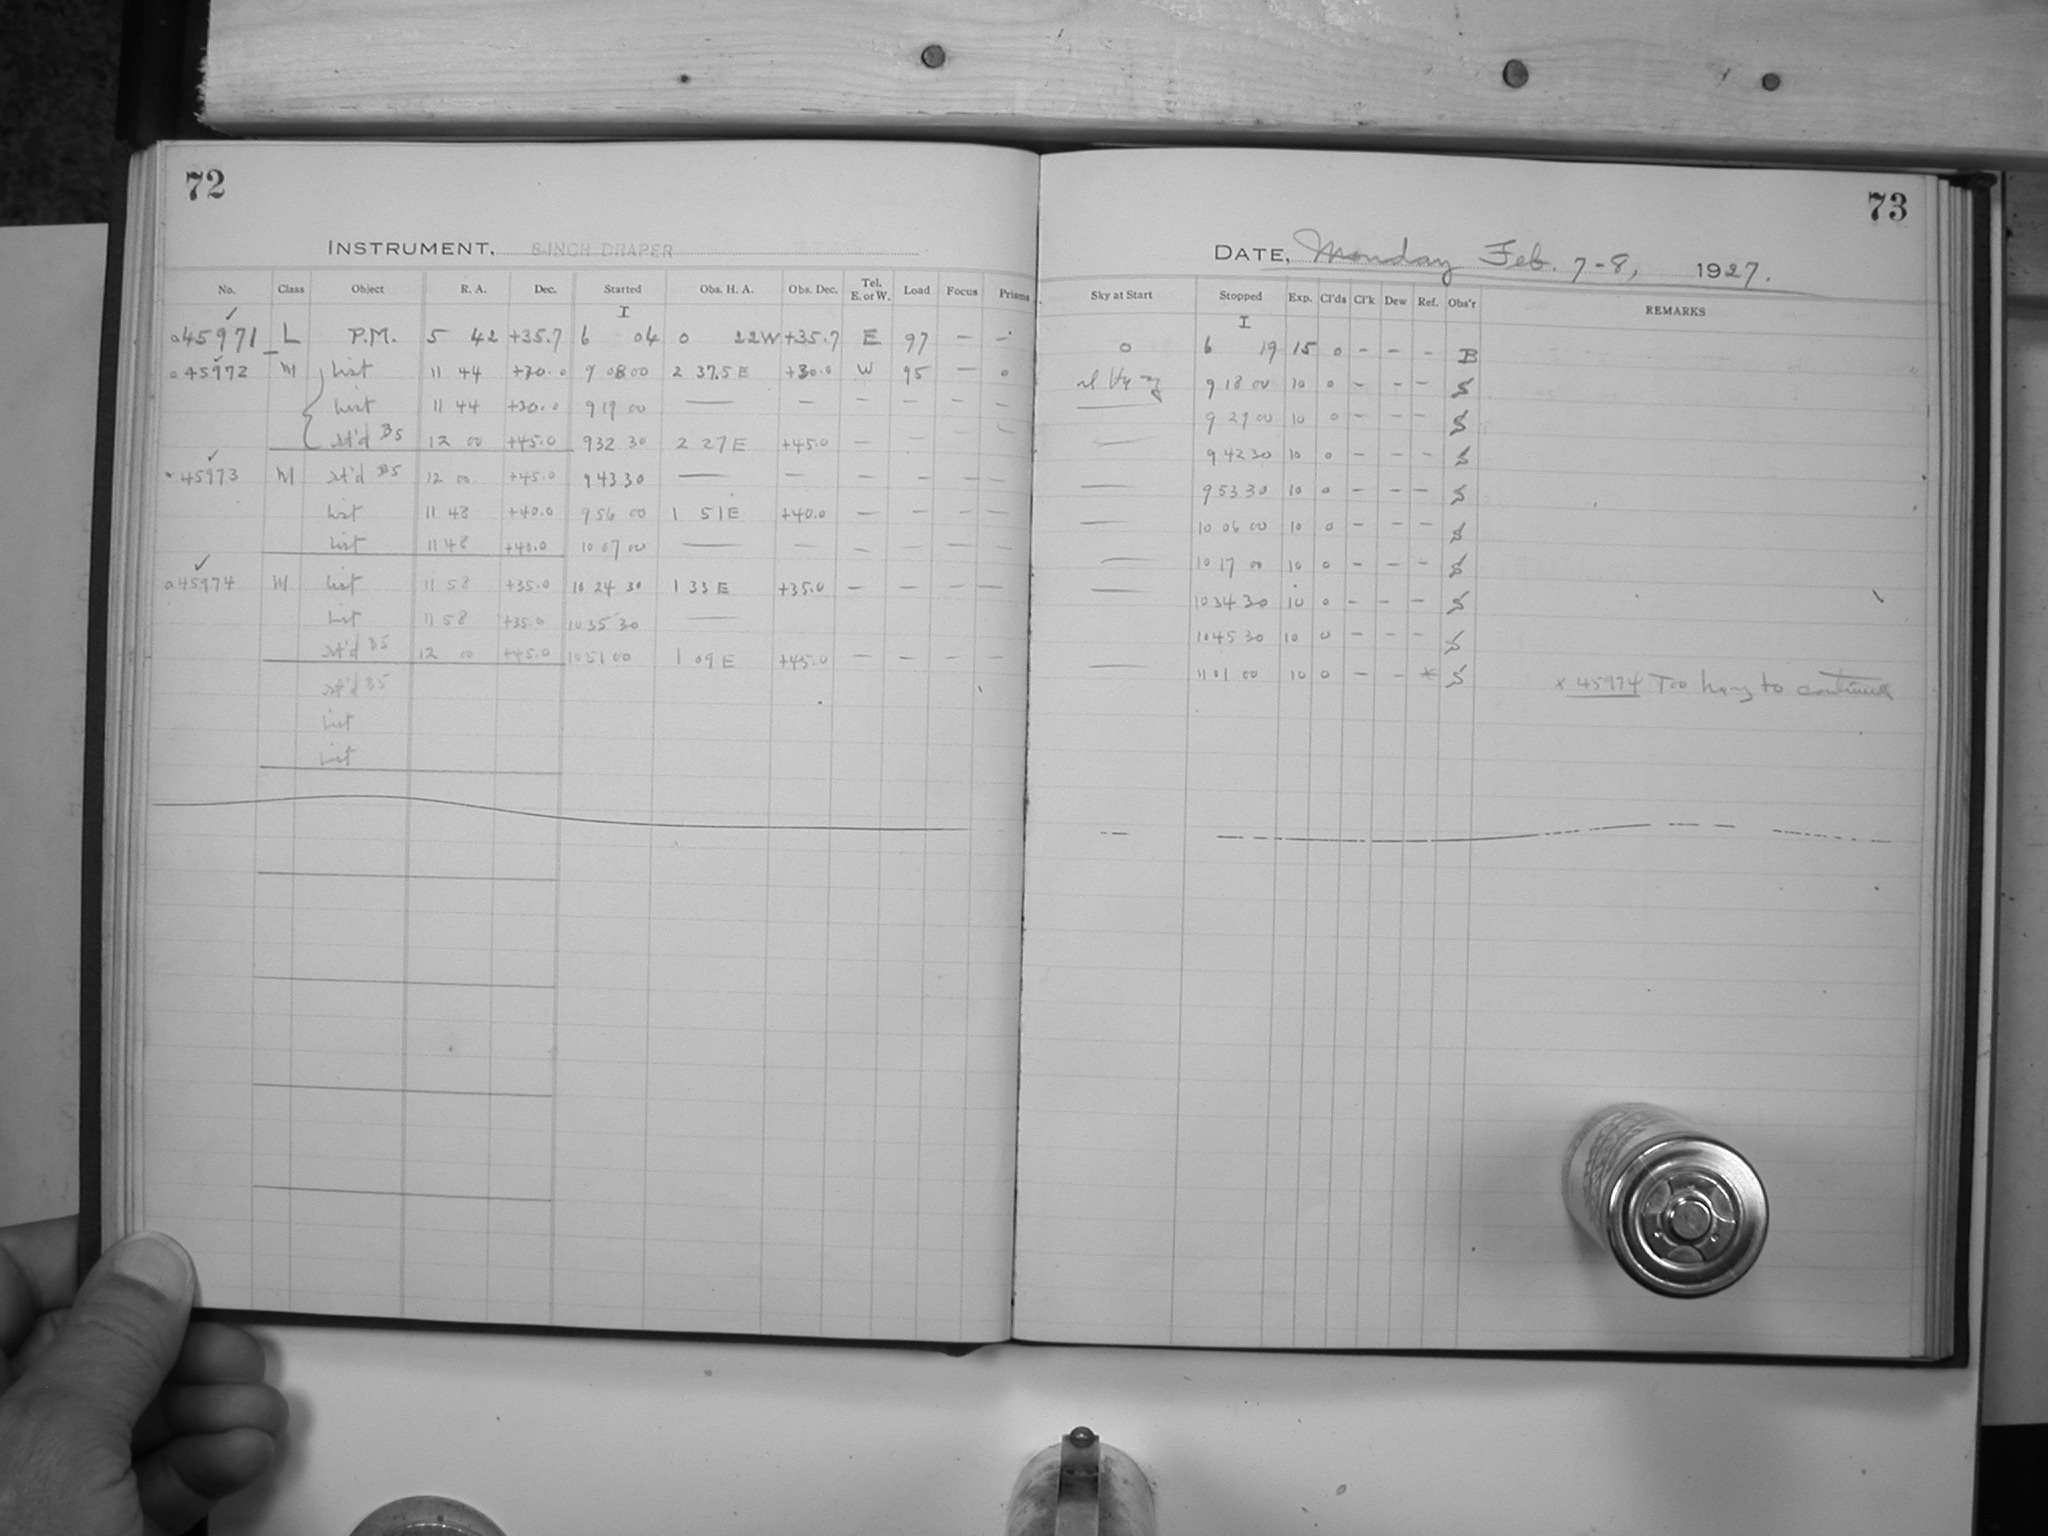 72
73
INSTRUMENT, 8-INCH DRAPER
DATE, Monday Feb. 7-8, 1927.
No. Class Object R. A. Dec. Started Obs. H. A. Obs. Dec. Tel. E. or W. Load Focus Prisms Sky at Start Stopped Exp. Cl'ds Cl'k Dew Ref. Obs'r REMARKS
I I
a45971 L P.M. 5 42 +35.7 6 04 0 22W +35.7 E 97 — — 0 6 19 15 0 — — — B
a45972 M List 11 44 +30.0 9 08 00 2 37.5 E +30.0 W 95 — 0 9 18 00 10 0 — — — S
List 11 44 +30.0 9 19 00 — — — — — — — 9 29 00 10 0 — — — S
st'd B5 12 00 +45.0 9 32 30 2 27 E +45.0 — — — — — 9 42 30 10 0 — — — S
45973 M st'd B5 12 00 +45.0 9 43 30 — — — — — — — 9 53 30 10 0 — — — S
List 11 48 +40.0 9 56 00 1 51 E +40.0 — — — — — 10 06 00 10 0 — — — S
List 11 48 +40.0 10 07 00 — — — — — — — 10 17 00 10 0 — — — S
a45974 M List 11 58 +35.0 10 24 30 1 33 E +35.0 — — — — — 10 34 30 10 0 — — — S
List 11 58 +35.0 10 35 30 — 10 45 30 10 0 — — — S
st'd B5 12 00 +45.0 10 51 00 1 09 E +45.0 — — — — — 11 01 00 10 0 — — * S x 45974 Too hazy to continue
st'd B5
List
List